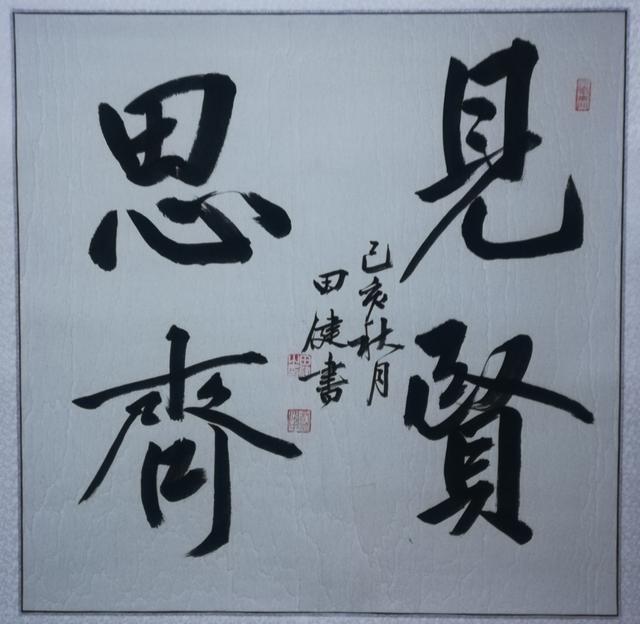 見賢
思齊
己亥秋月
田健書